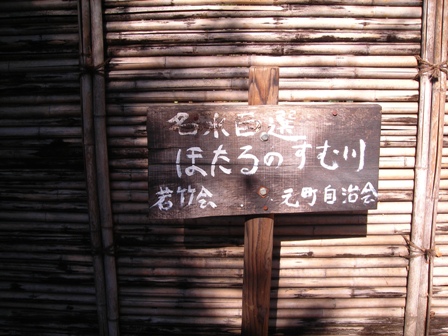 名水百選
ほたるのすむ川
若竹会 元町自治会